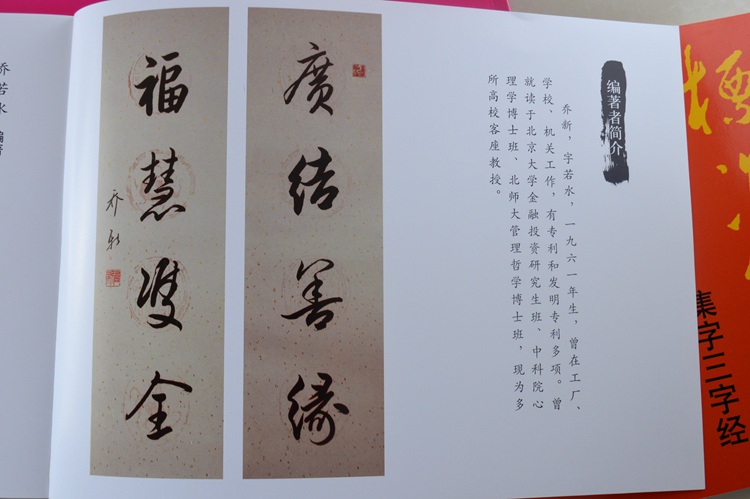 集字三字经
编著者简介
乔新，字若水，一九六一年生，曾在工厂、
学校、机关工作，有专利和发明专利多项。曾
就读于北京大学金融投资研究生班、中科院心
理学博士班、北师大管理哲学博士班，现为多
所高校客座教授。
廣結善緣
福慧雙全
乔新
乔若水 编著